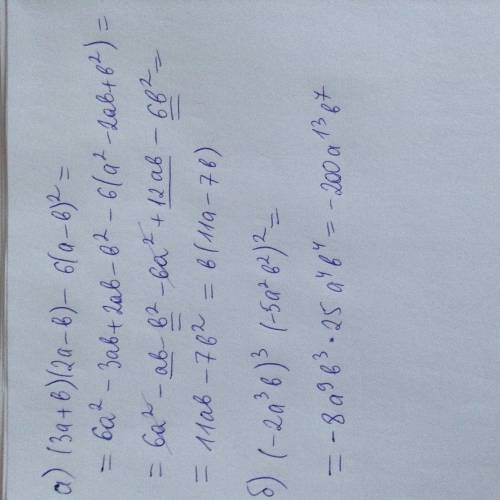 а) (3a+b)(2a-b) - 6(a-b)² =
= 6a² - 3ab + 2ab - b² - 6(a² - 2ab + b²) =
= 6a² - ab - b² - 6a² + 12ab - 6b² =
= 11ab - 7b² = b(11a - 7b)
б) (-2a³b)³ (-5a²b²)² =
= -8a⁹b³ · 25a⁴b⁴ = -200a¹³b⁷